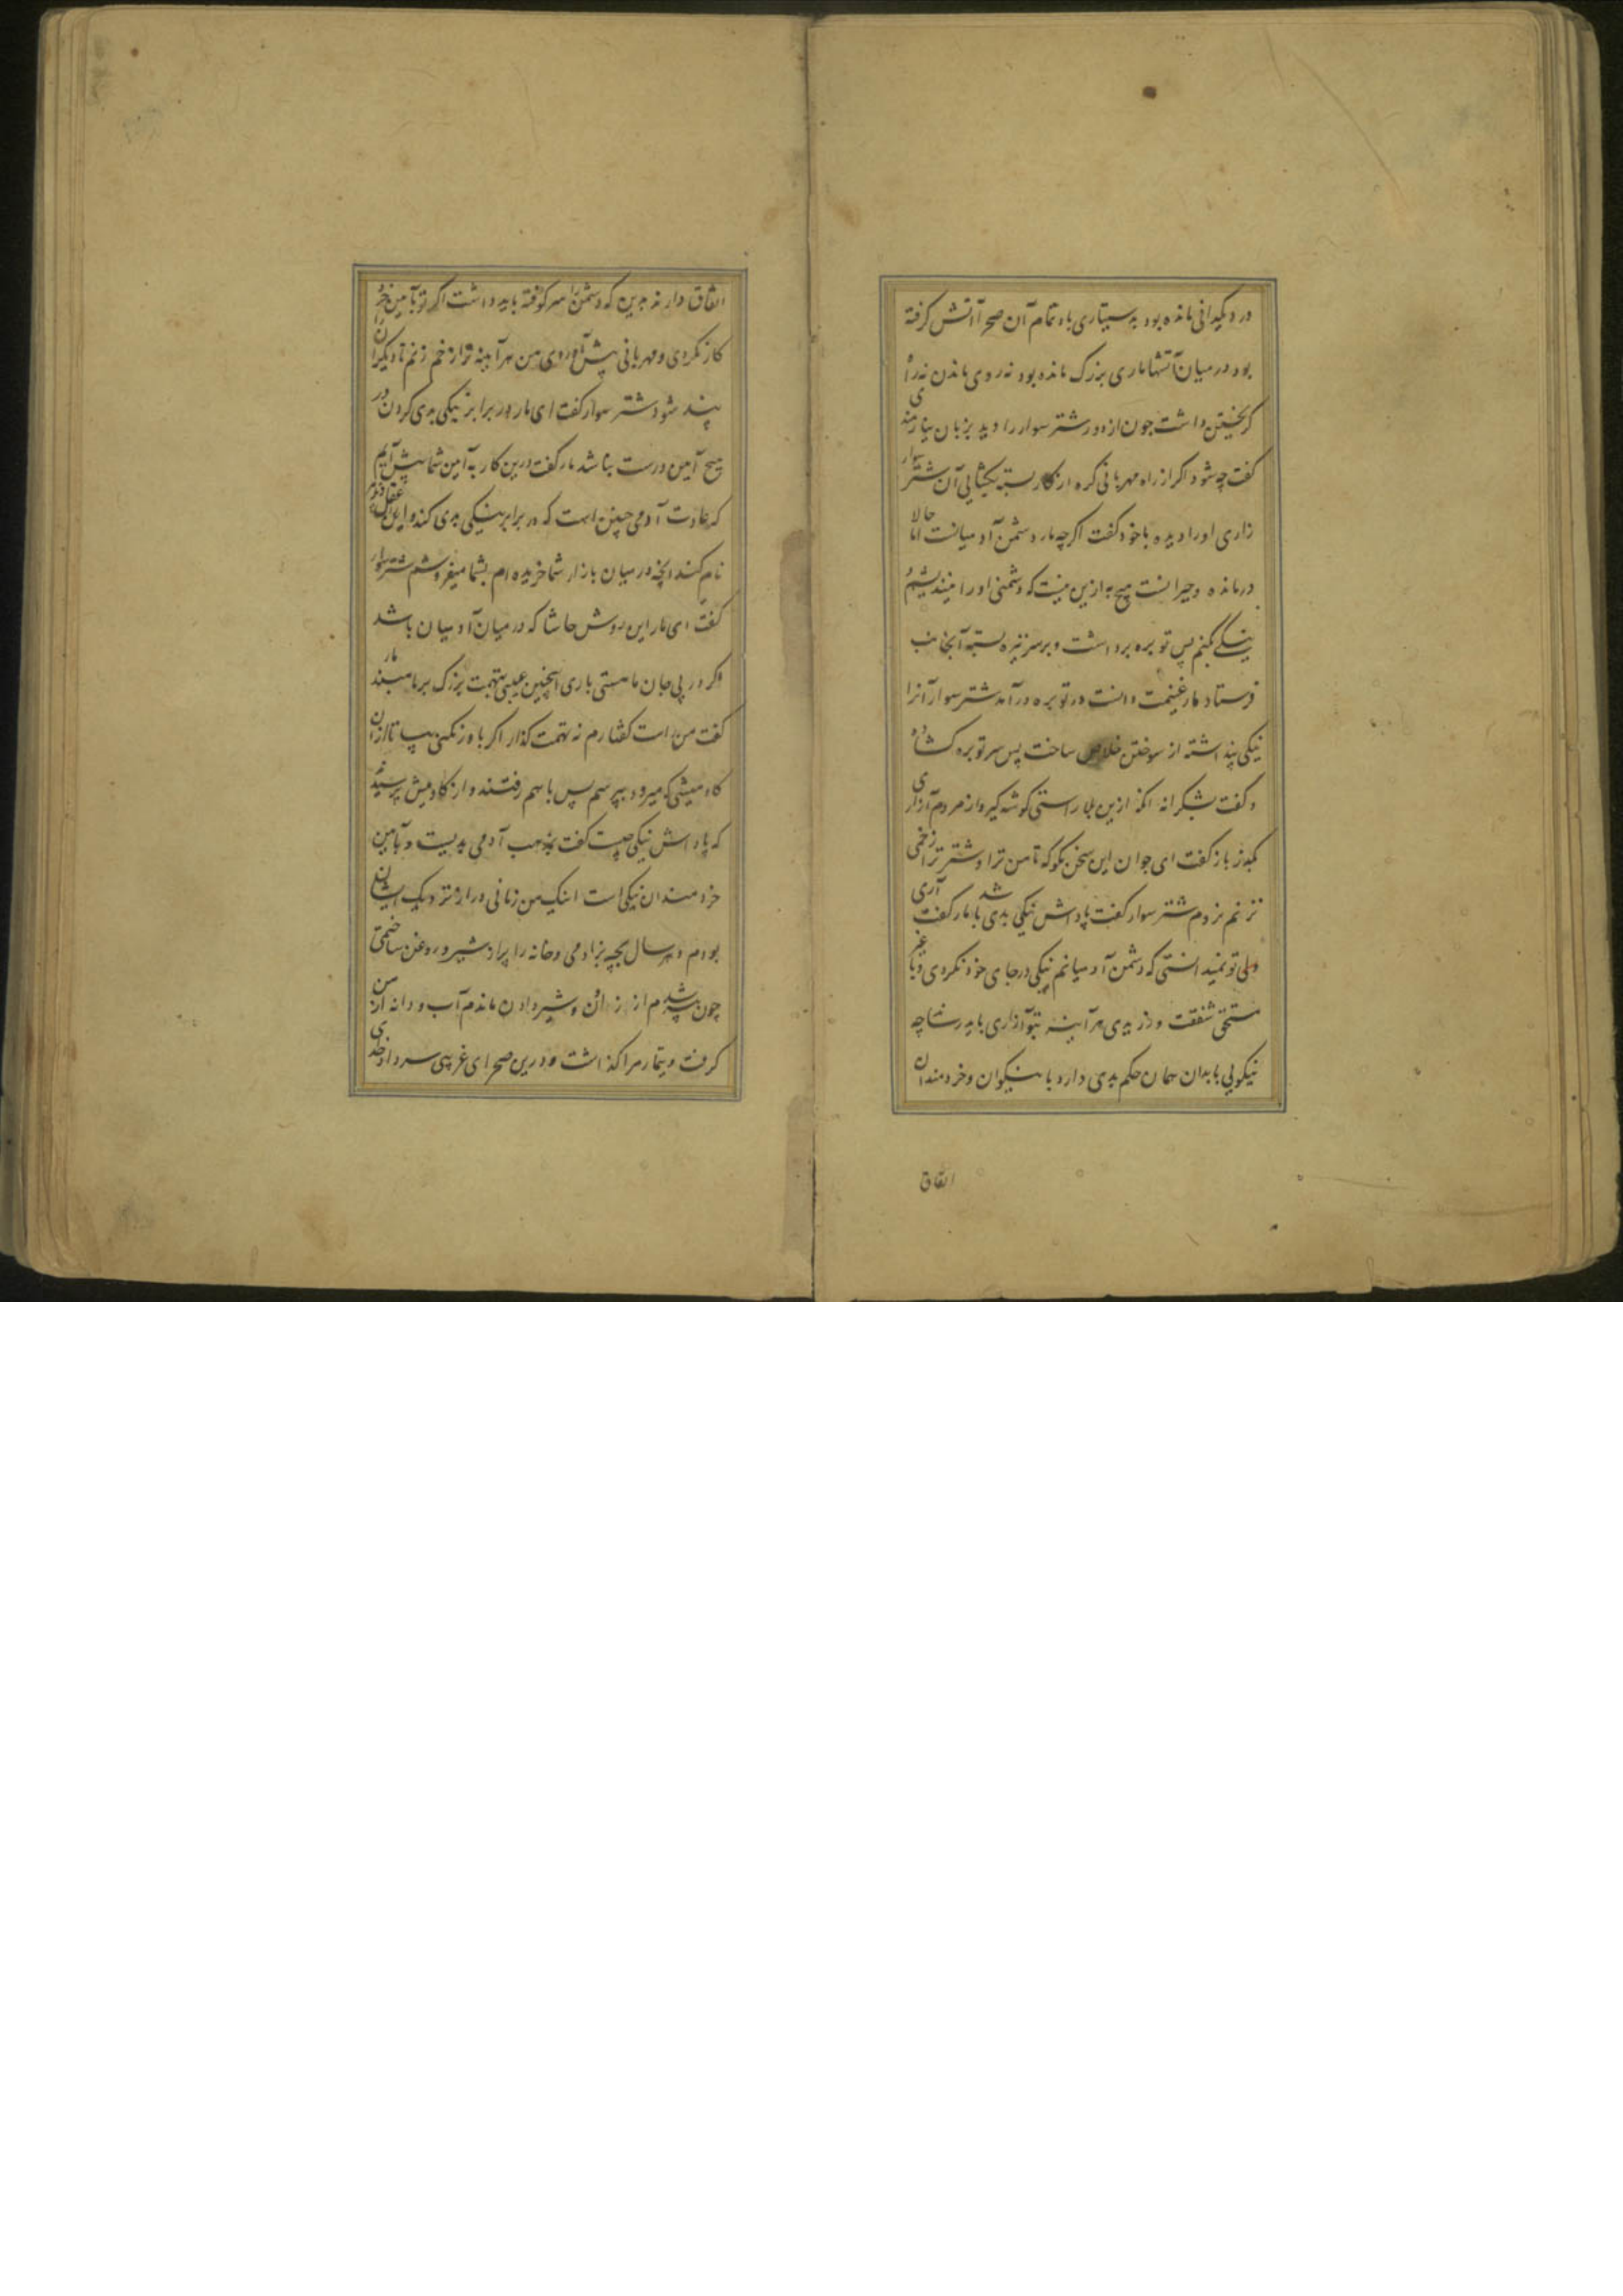 در دیگدانی مانده بود به دستیاری باد تمام آن صحرا آتش گرفته
بود در میان آتشها ماری بزرگ مانده بود نه روی ماندن نه راه
گریختن داشت چون از دور شتر سوار را دید بزبان نیازمندی
گفت چه شود اگر از راه مهربانی گره از کار بسته بگشایی آن شتر سوار
زاری او را دیده با خود گفت اگر چه مار دشمن آدمیانست اما حالا
درمانده و حیرانست هیچ به ازین نیست که دشمنی او را نیندیشم
نیکی کنم پس توبره برداشت و بر سر نیزه بسته آنجانب
فرستاد مار غنیمت دانست در توبره در آمد شتر سوار آنرا
نیکی پنداشته از سوختن خلاص ساخت پس سر توبره گشاده
و گفت بشکرانه آنکه ازین بلا رستی گوشه گیر و از مردم آزاری
بگذر باز گفت ای جوان این سخن مگو که تا من ترا و شتر ترا زخمی
نزنم نروم شتر سوار گفت پاداش نیکی بدی باشد مار گفت آری
ولی تو نمیدانستی که دشمن آدمیانم نیکی در جای خود نکردی و با غیر
مستحق شفقت ورزیدی هر آینه بتو آزاری باید رسد چه
نیکویی با بدان همان حکم بدی دارد با نیکوان و خردمندان
اتفاق
اتفاق دارند برین که دشمن را سر کوفته باید داشت اگر تو بآیین خرد
کار نکردی و مهربانی پیش آوردی من هر آیینه ترا زخم زنم تا دیگرانرا
پند شود شتر سوار گفت ای مار در برابر نیکی بدی کردن در
هیچ آیین درست نباشد مار گفت درین کار به آیین شما پیش آیم
که عادت آدمی چنین است که در برابر نیکی بدی کند و این را عقل
نام کند آنچه در میان بازار شما خریده ام بشما میفروشم شتر سوار
گفت ای مار این روش حاشا که در میان آدمیان باشد
اگر در پی جان ما هستی باری اینچنین عیبی بتهمت بزرگ بر ما مبند مار
گفت من راست گفتارم نه تهمت گذار اگر باور نکنی بیا تا از آن
گاو میشی که میرود بپرسم پس با هم رفتند و از گاومیش پرسیدند
که پاداش نیکی چیست گفت بمذهب آدمی بدیست و بآیین
خردمندان نیکی است اینک من زمانی دراز نزدیک ایشان
بودم و هر سال بچه بزادمی و خانه را پر از شیر و روغن ساختمی
چون پیر شدم از زادن و شیر دادن ماندم آب و دانه از من
گرفت و تیمار مرا گذاشت و درین صحرای غریبی سر داد